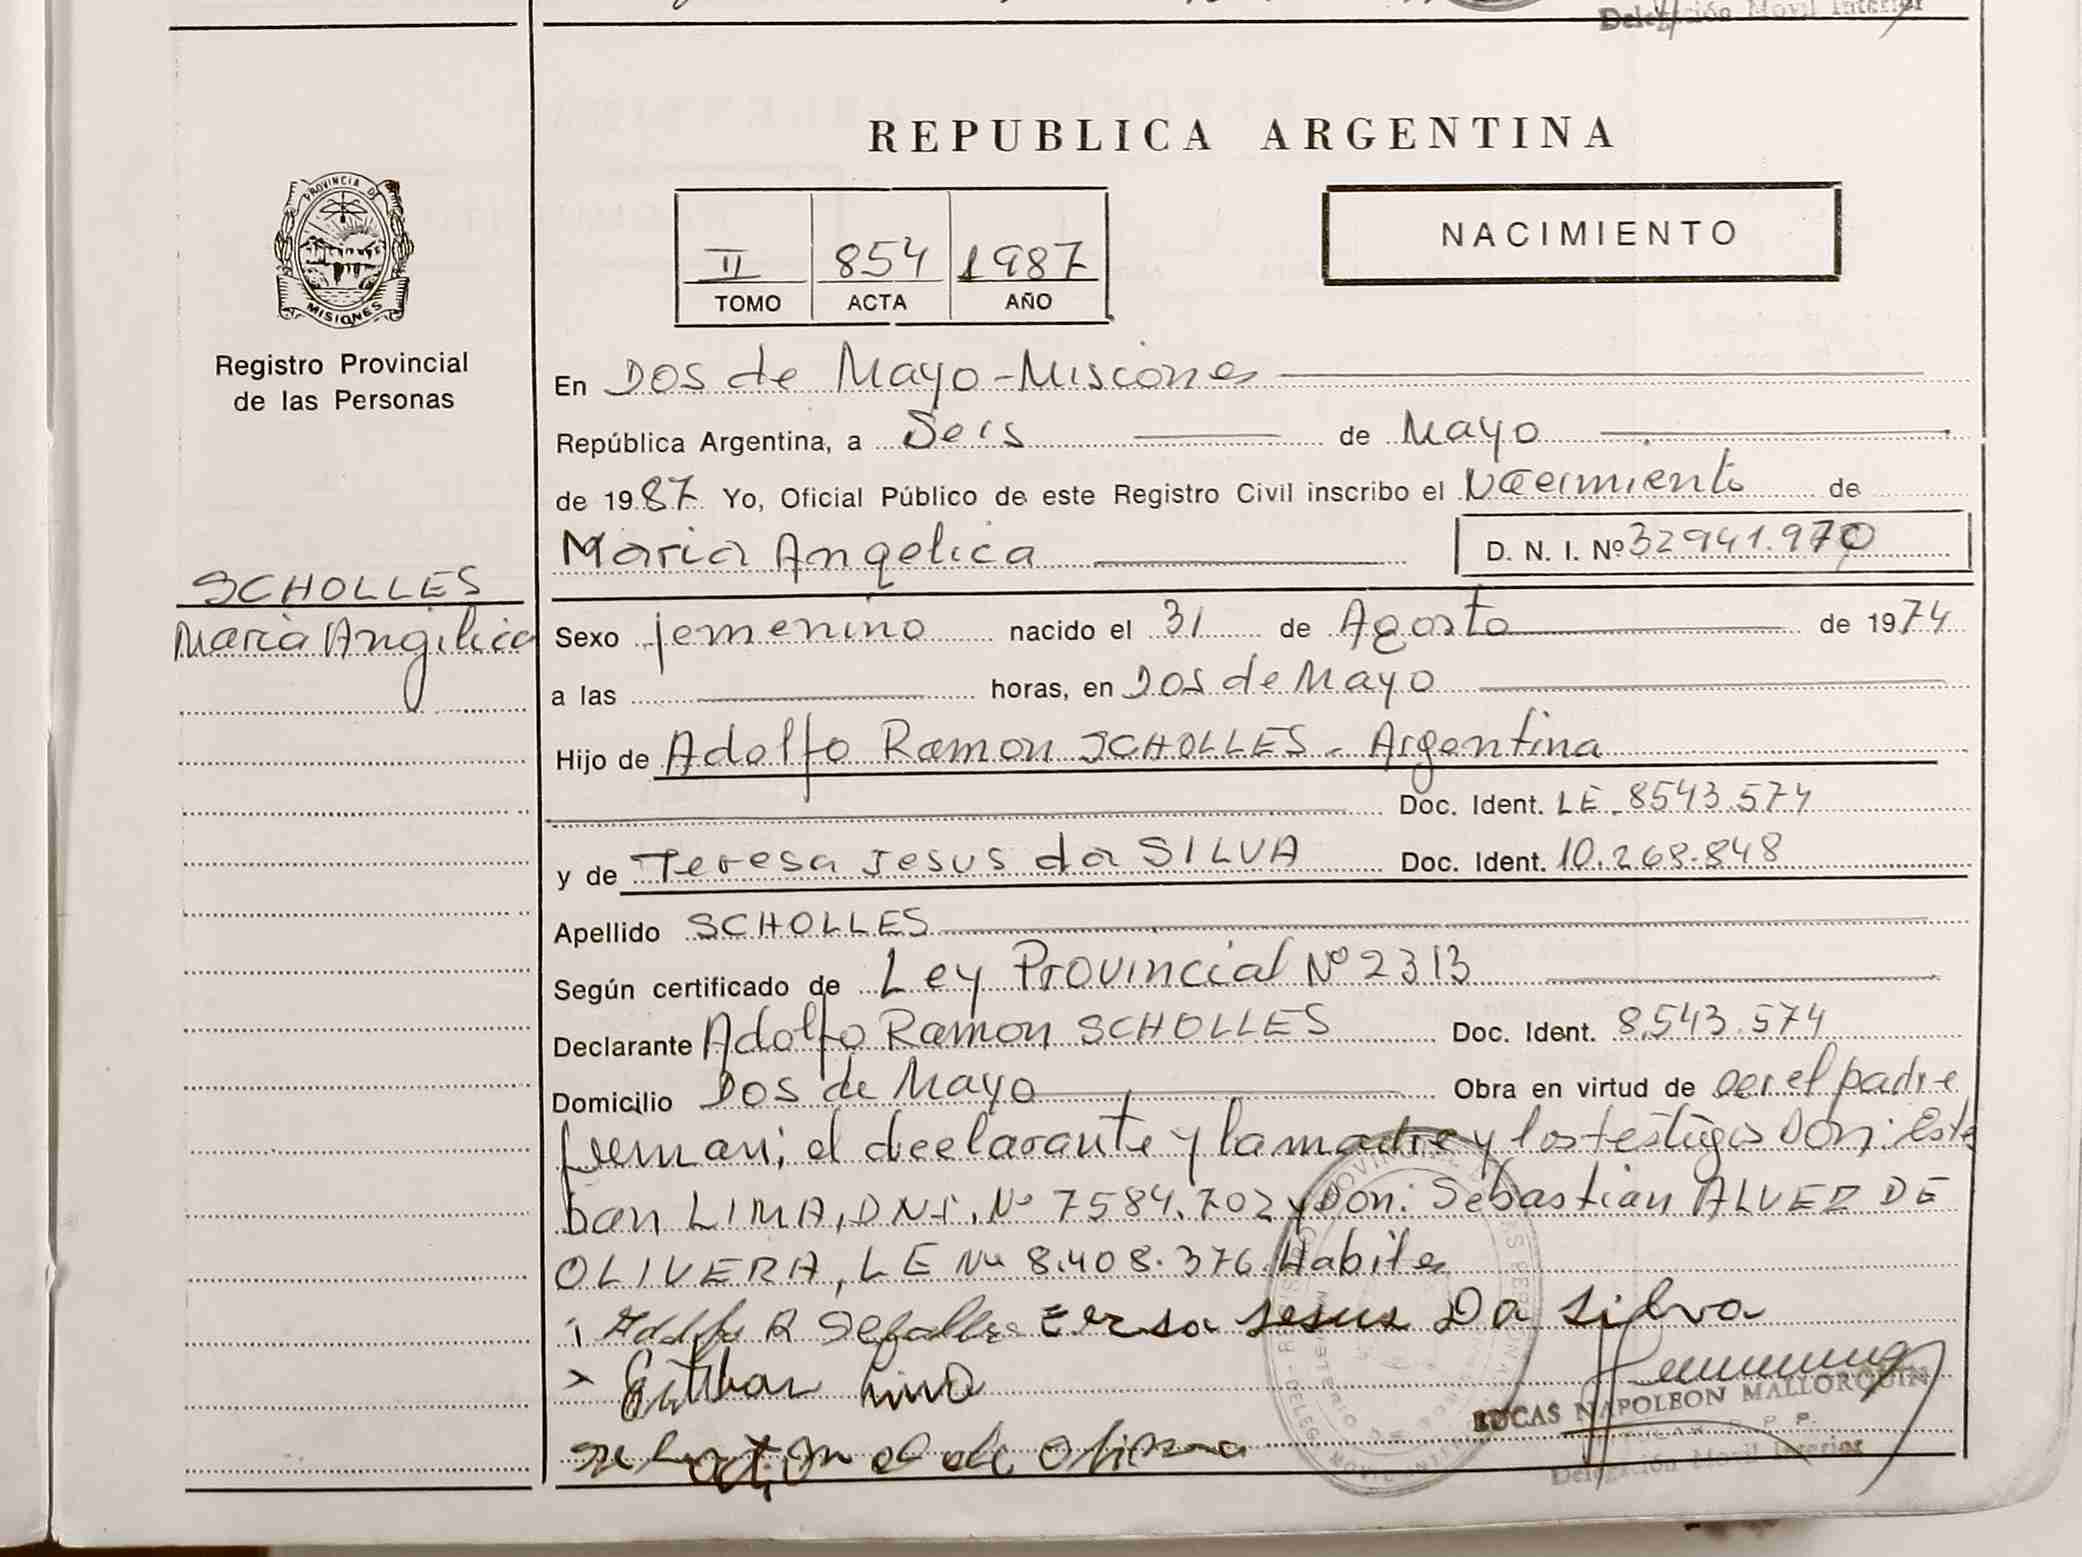 Delegación Movil Interior
REPUBLICA ARGENTINA
PROVINCIA DE
MISIONES
Registro Provincial
de las Personas
II 854 1987
TOMO ACTA AÑO
NACIMIENTO
En Dos de Mayo-Misiones
República Argentina, a Seis de Mayo
de 1987 Yo, Oficial Público de este Registro Civil inscribo el Nacimiento de
Maria Angelica D. N. I. Nº 32941.970
SCHOLLES
Maria Angelica
Sexo femenino nacido el 31 de Agosto de 1974
a las horas, en Dos de Mayo
Hijo de Adolfo Ramon SCHOLLES - Argentina
Doc. Ident. LE. 8543.574
y de Teresa Jesus da SILVA Doc. Ident. 10.268.848
Apellido SCHOLLES
Según certificado de Ley Provincial Nº 2313
Declarante Adolfo Ramon SCHOLLES Doc. Ident. 8.543.574
Domicilio Dos de Mayo Obra en virtud de ser el padre
firman: el declarante y la madre y los testigos Don: Este
ban LIMA, DNI. Nº 7584.702 y Don: Sebastian ALVEZ DE
OLIVERA, LE Nº 8.408.376. Habiles
Adolfo R Scholles Eersa Jesus Da Silva
Esteban Lima
LUCAS NAPOLEON MALLORQUIN
Delegación Movil Interior